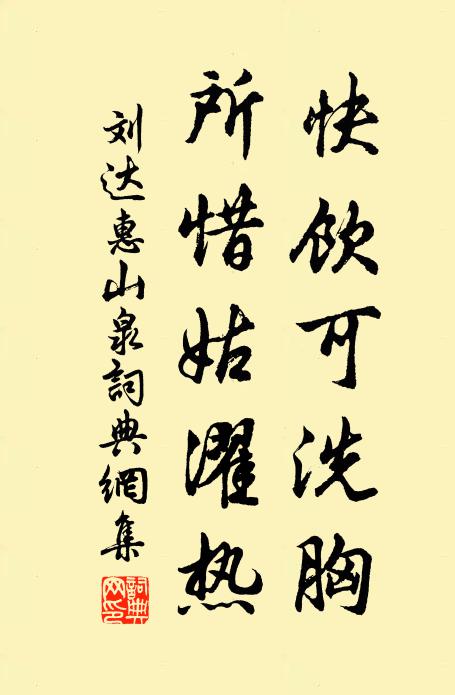 快饮可洗胸
所惜姑濯热
刘达惠山泉詞典網集
詞典網印